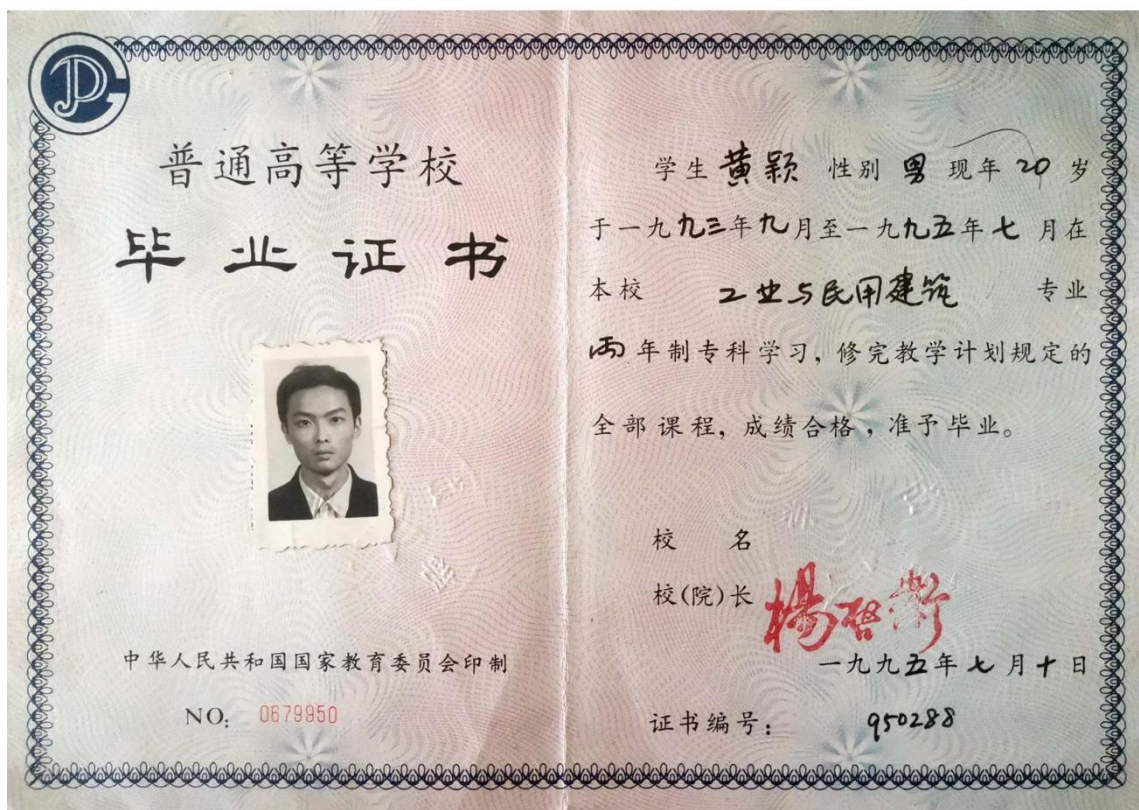 普通高等学校
毕业证书
中华人民共和国国家教育委员会印制
NO: 0679950
学生 黄颖 性别 男 现年 20 岁
于一九九三年九月至一九九五年七月在
本校 工业与民用建筑 专业
两年制专科学习，修完教学计划规定的
全部课程，成绩合格，准予毕业。
校 名
校(院)长
一九九五年七月十日
证书编号： 950288